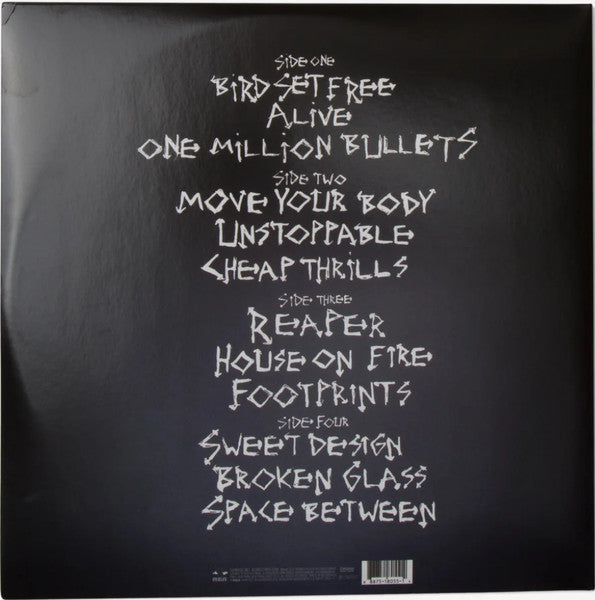 SIDE ONE
BIRD SET FREE
ALIVE
ONE MILLION BULLETS
SIDE TWO
MOVE YOUR BODY
UNSTOPPABLE
CHEAP THRILLS
SIDE THREE
REAPER
HOUSE ON FIRE
FOOTPRINTS
SIDE FOUR
SWEET DESIGN
BROKEN GLASS
SPACE BETWEEN